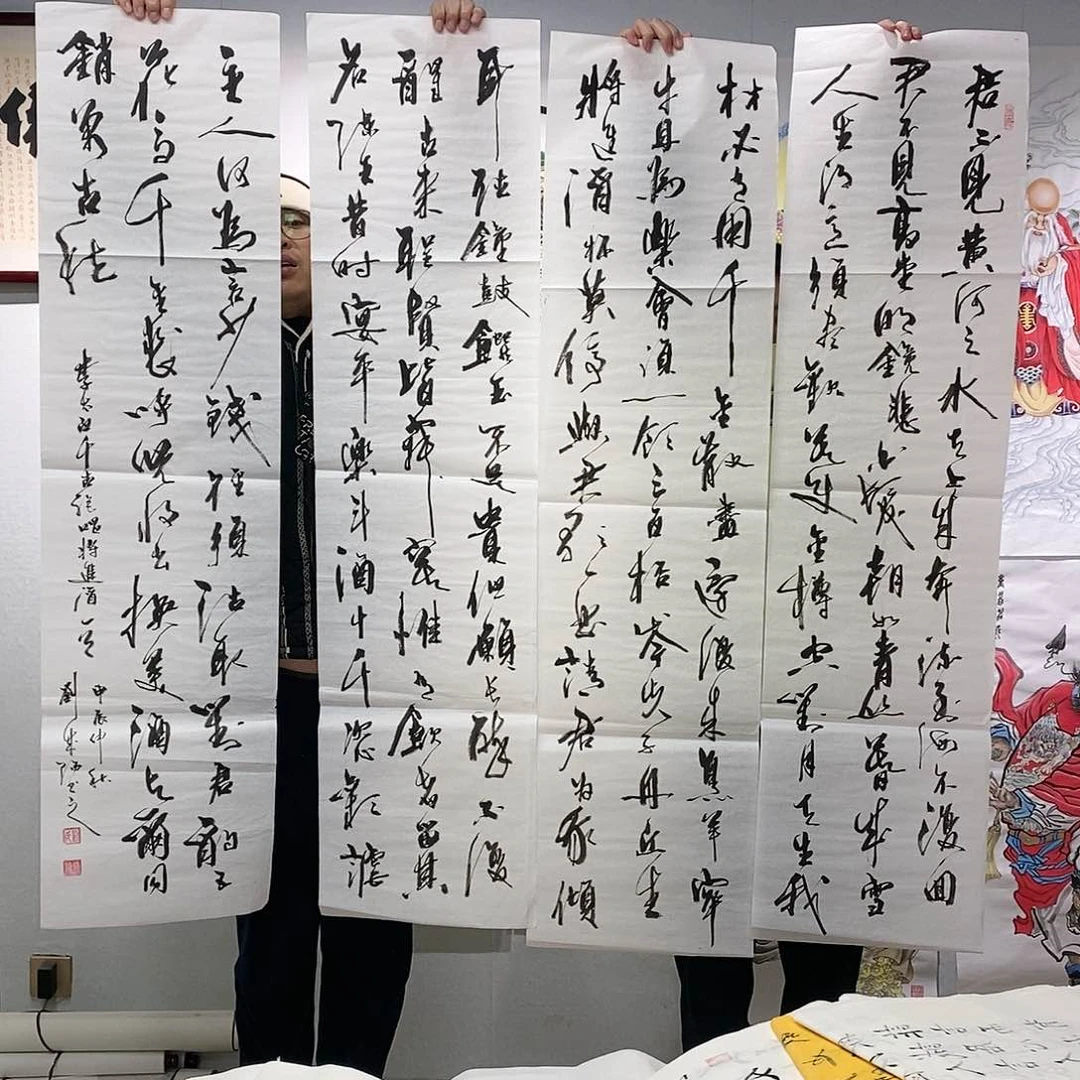 君不見黃河之水天上來奔流到海不復回
君不見高堂明鏡悲白髮朝如青絲暮成雪
人生得意須盡歡莫使金樽空對月天生我
材必有用千金散盡還復來烹羊宰
牛且為樂會須一飲三百杯岑夫子丹丘生
將進酒杯莫停與君歌一曲請君為我傾
耳聽鐘鼓饌玉不足貴但願長醉不復
醒古來聖賢皆寂寞惟有飲者留其
名陳王昔時宴平樂斗酒十千恣歡謔
主人何為言少錢徑須沽取對君酌五
花馬千金裘呼兒將出換美酒與爾同
銷萬古愁
李太白千古絕唱將進酒一首
甲辰仲秋
劉